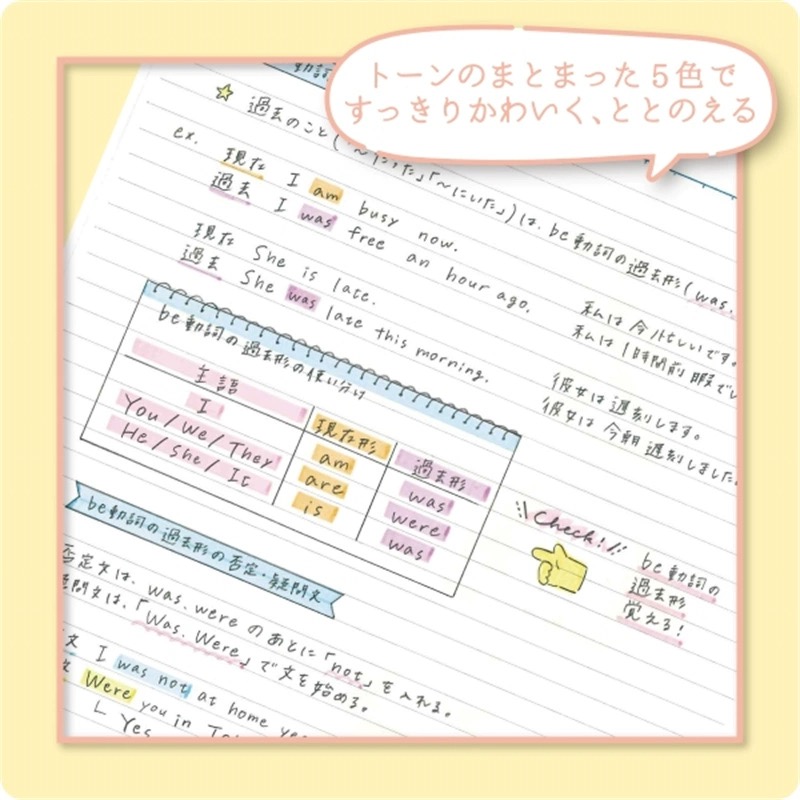 トーンのまとまった5色で
すっきりかわいく、ととのえる
動詞
☆ 過去のこと(「~だった」「~にいた」)は、be動詞の過去形(was.
ex. 現在 I am busy now.
過去 I was free an hour ago.
私は今忙しいです。
私は1時間前暇でし
現在 She is late.
過去 She was late this morning.
彼女は遅刻します。
彼女は今朝遅刻しました。
be動詞の過去形の使い分け
主語 現在形 過去形
I am was
You/We/They are were
He/She/It is was
Check!
be動詞の
過去形
覚えろ!
be動詞の過去形の否定・疑問文
否定文は、was. were のあとに「not」を入れる。
疑問文は、「Was. Were」で文を始める。
文 I was not at home ye
文 Were you in To
Yes